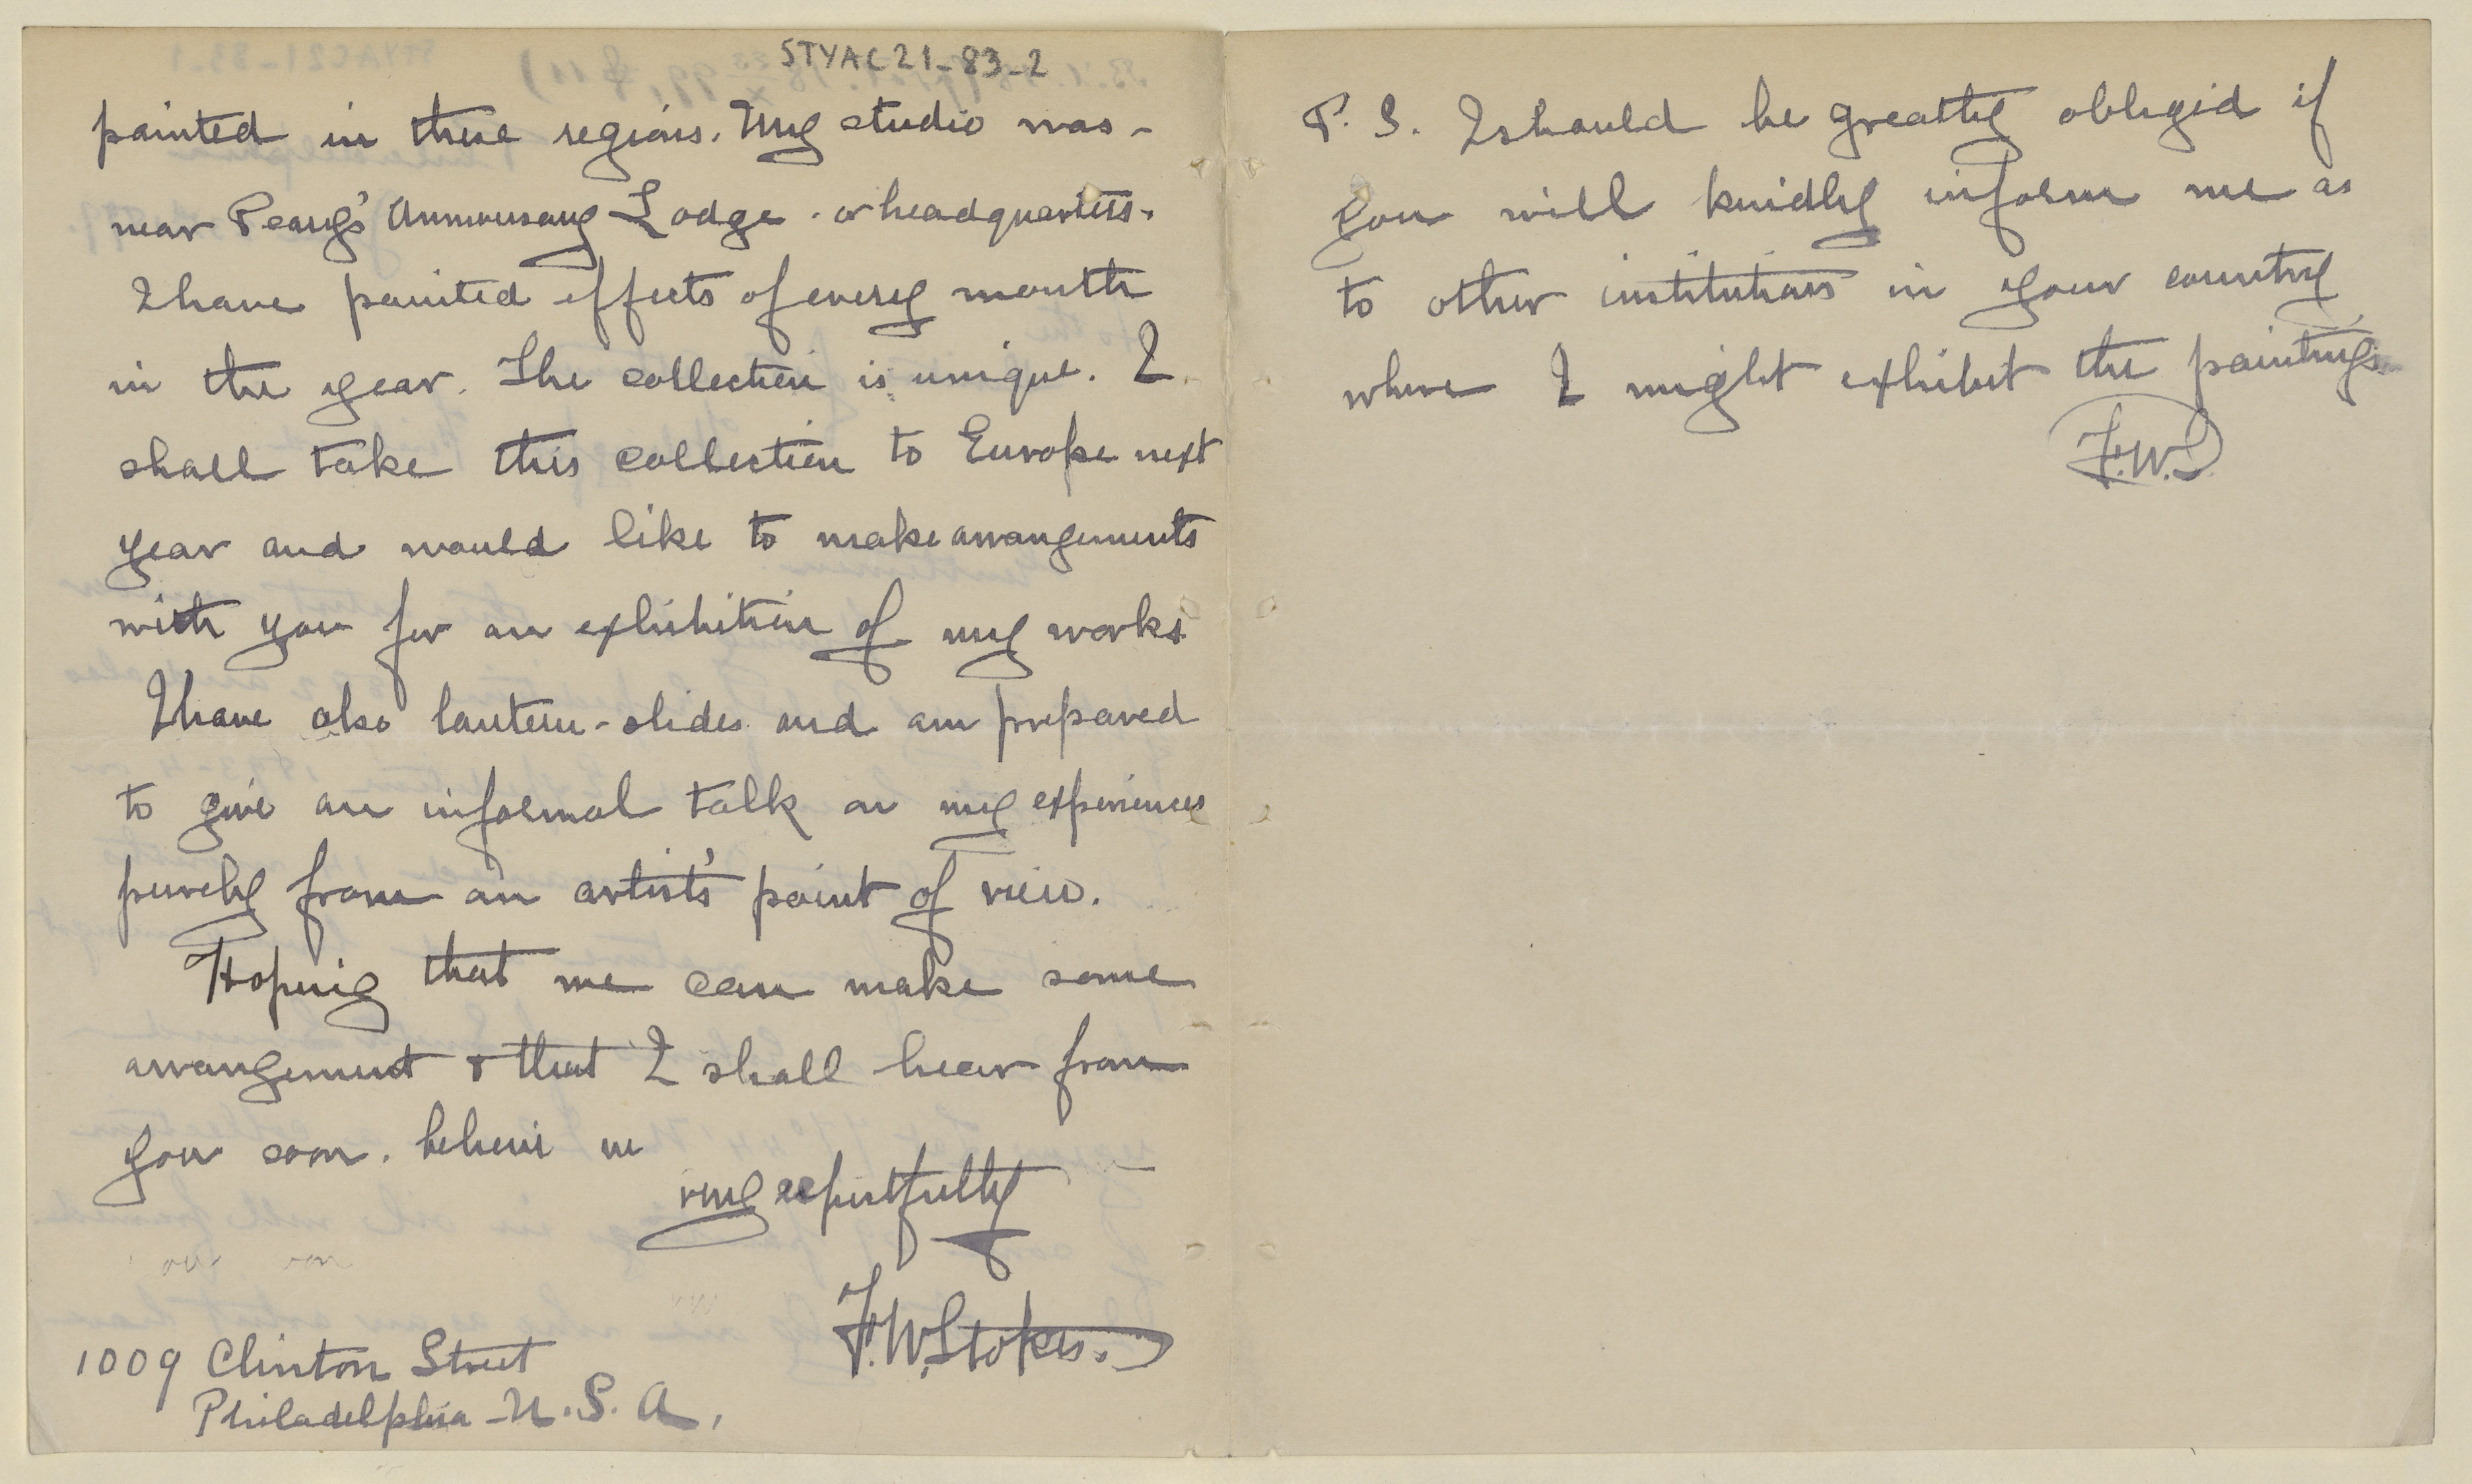 STYAC21_83_2
painted in these regions. My studio was -
near Peary's Annivursary Lodge. or headquarters.
I have painted effects of every month
in the year. The collection is unique. I
shall take this collection to Europe next
year and would like to make arrangements
with you for an exhibition of my works
I have also lantern-slides and am prepared
to give an informal talk on my experiences
purely from an artist's point of view.
Hoping that we can make some
arrangement & that I shall hear from
you soon. believe me
very respectfully
F.W. Stokes.
1009 Clinton Street
Philadelphia - U.S.A.
P. S. I should be greatly obliged if
you will kindly inform me as
to other institutions in your country
where I might exhibit the paintings.
F.W.S